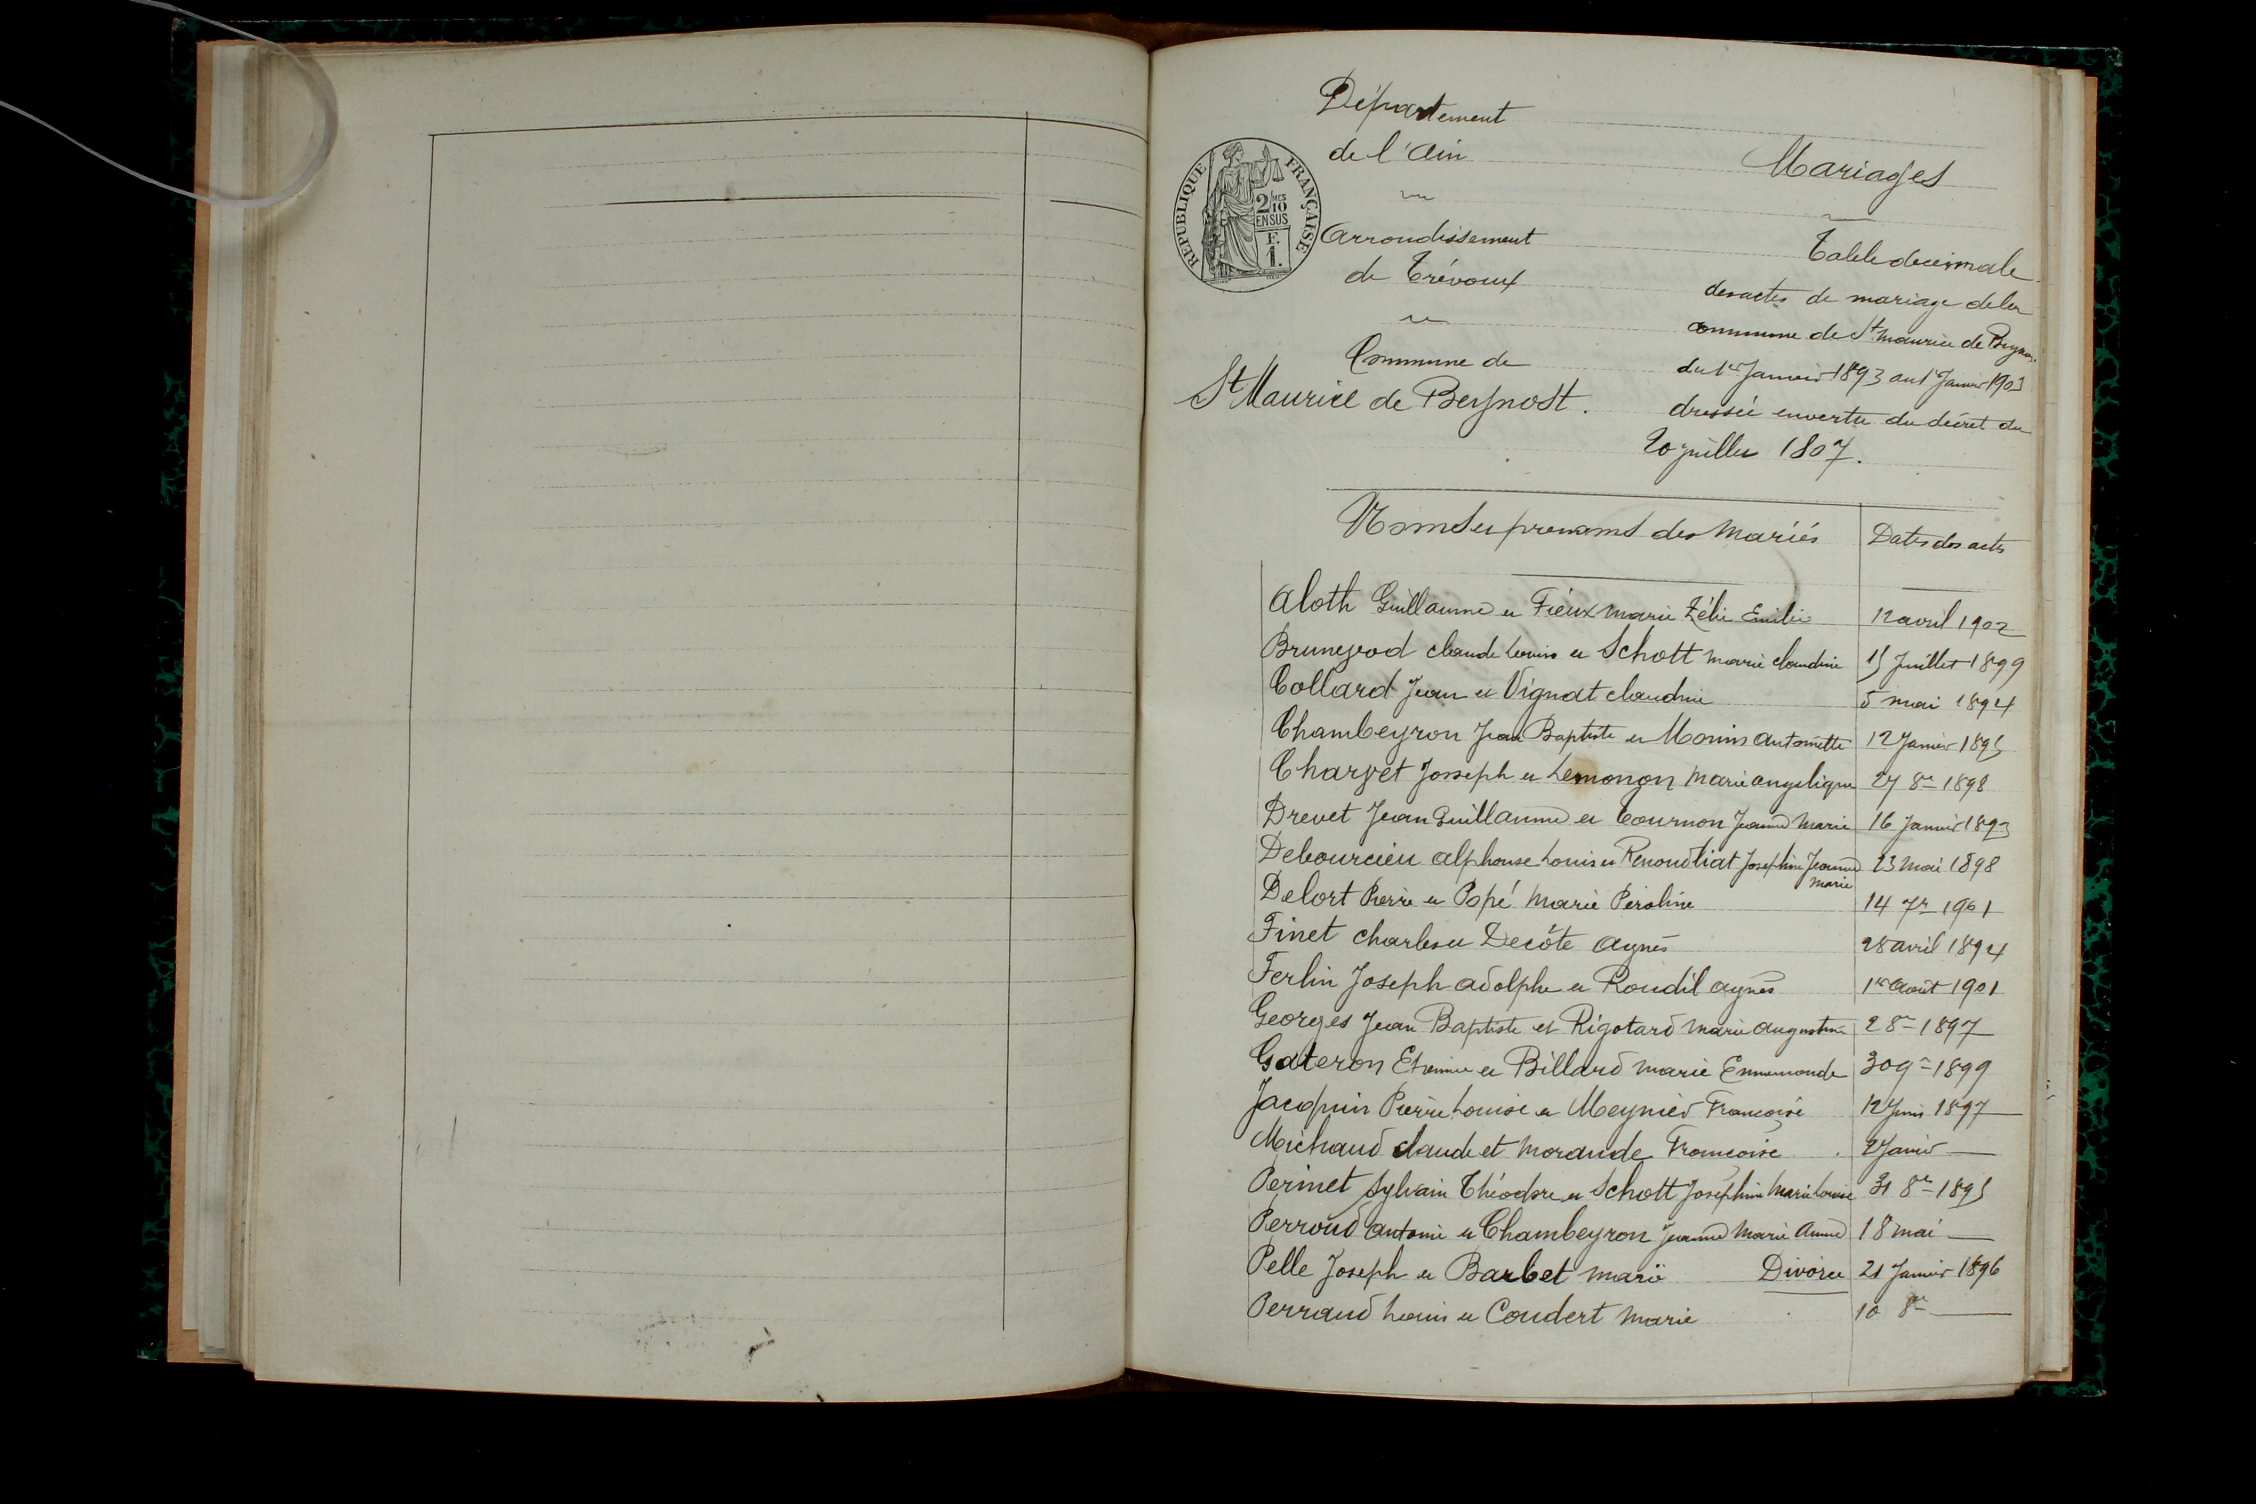 Département
de l'Ain
Mariages
RÉPUBLIQUE FRANÇAISE
2/10 EN SUS
F.
1.
Arrondissement
de Trévoux
Table décimale
des actes de mariage de la
commune de St Maurice de Beynost
du 1er Janvier 1893 au 1er Janvier 1903
dressée en vertu du décret du
20 juillet 1807.
Commune de
St Maurice de Beynost.
Noms et prenoms des Mariés Dates des actes
Aloth Guillaume et Fiéux Marie Zélie Emilie 12 avril 1902
Bruneyrod Claude Louis et Schott Marie Claudine 15 Juillet 1899
Collard Jean et Vignat Claudine 5 mai 1894
Chambeyron Jean Baptiste et Monin Antoinette 12 Janvier 1895
Charvet Josseph et Lemonon Marie Angelique 27 8re 1898
Drevet Jean Guillaume et Tournon Jeanne Marie 16 Janvier 1893
Debourcieu Alphonse Louis et Renoud Josephine Jeanne Marie 23 Mai 1898
Delort Pierre et Popé Marie Peroline 14 7re 1901
Finet Charles et Decôte Agnès 28 avril 1894
Ferlin Joseph Adolphe et Roudil Agnès 1er Août 1901
Georges Jean Baptiste et Rigotard Marie Augustine 2 8re 1897
Gateron Etienne et Billard Marie Ennemonde 30 9re 1899
Jacquin Pierre Louise et Meynier Françoise 12 Juin 1897
Michaud Claude et Morande Françoise 2 Janvier —
Perinet Sylvain Théodore et Schott Joséphine Marie Louise 31 8re 1895
Perroud Antoine et Chambeyron Jeanne Marie Anne 18 mai —
Pelle Joseph et Barbet Marie Divorcé 21 Janvier 1896
Perraud Louis et Coudert Marie 10 8re —